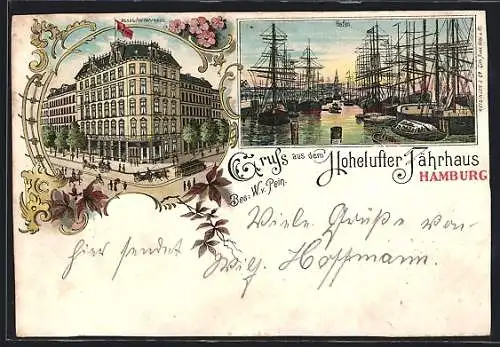 Hafen
Gruss aus dem Hohelufter Fährhaus
HAMBURG
Bes: W. v. Pein.
Viele Grüße von
hier sendet Wilh. Hoffmann.